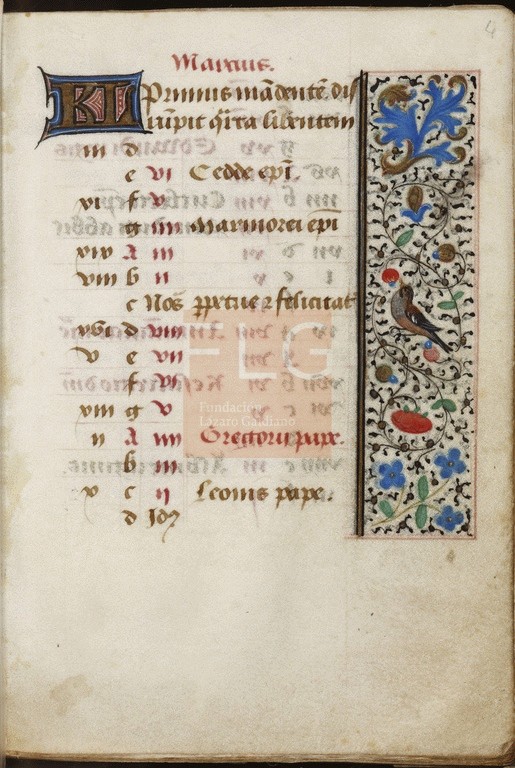 4
Marcius.
KL Primus mādentē dis
rūpit q̄rta bibentem
iii d
e vi Cedde ep̄i.
xi f v
g iiii Marmorei ep̄i
xix A iii
viii b ii
c Noꝫ ꝑpetue ⁊ felicitat
xvi d viii
v e vii
f vi
xiii g v
ii A iiii Gregorii pape.
b iii
x c ii Leonis pape.
d Idꝫ
FLG
Fundación
Lázaro Galdiano